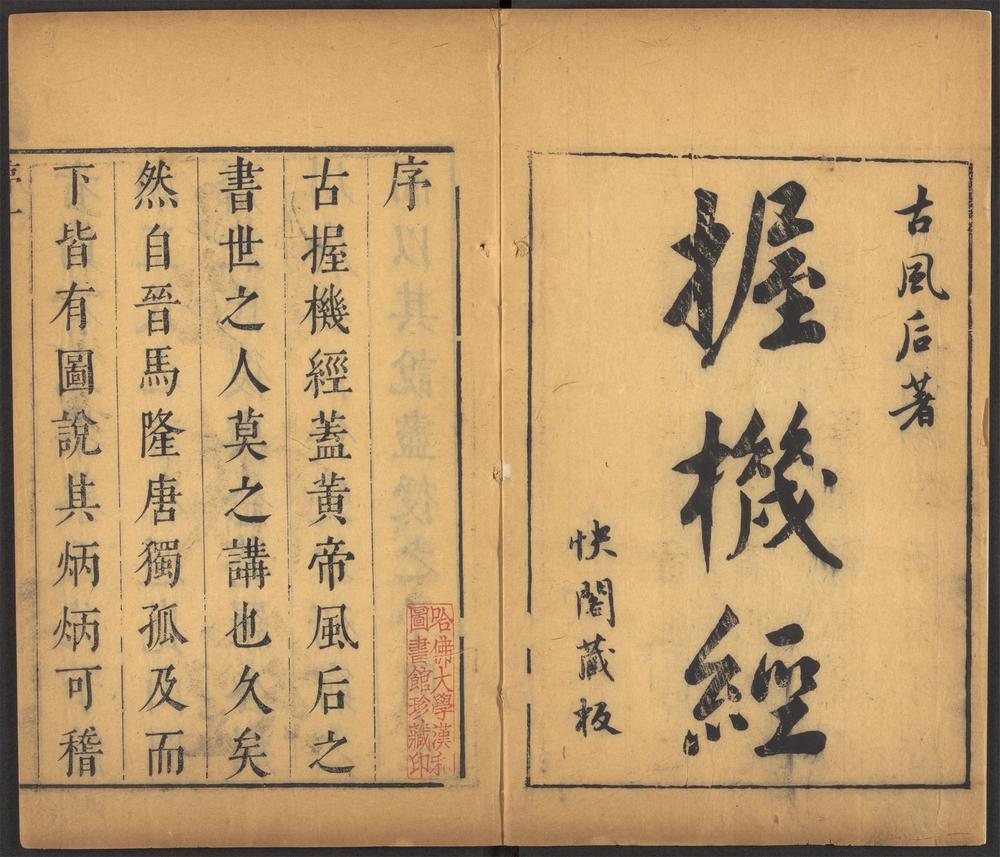 古風后著
握機經
快閣藏板
序
古握機經蓋黄帝風后之
書世之人莫之講也久矣
然自晉馬隆唐獨孤及而
下皆有圖說其炳炳可稽
哈佛大學漢和
圖書館珍藏印